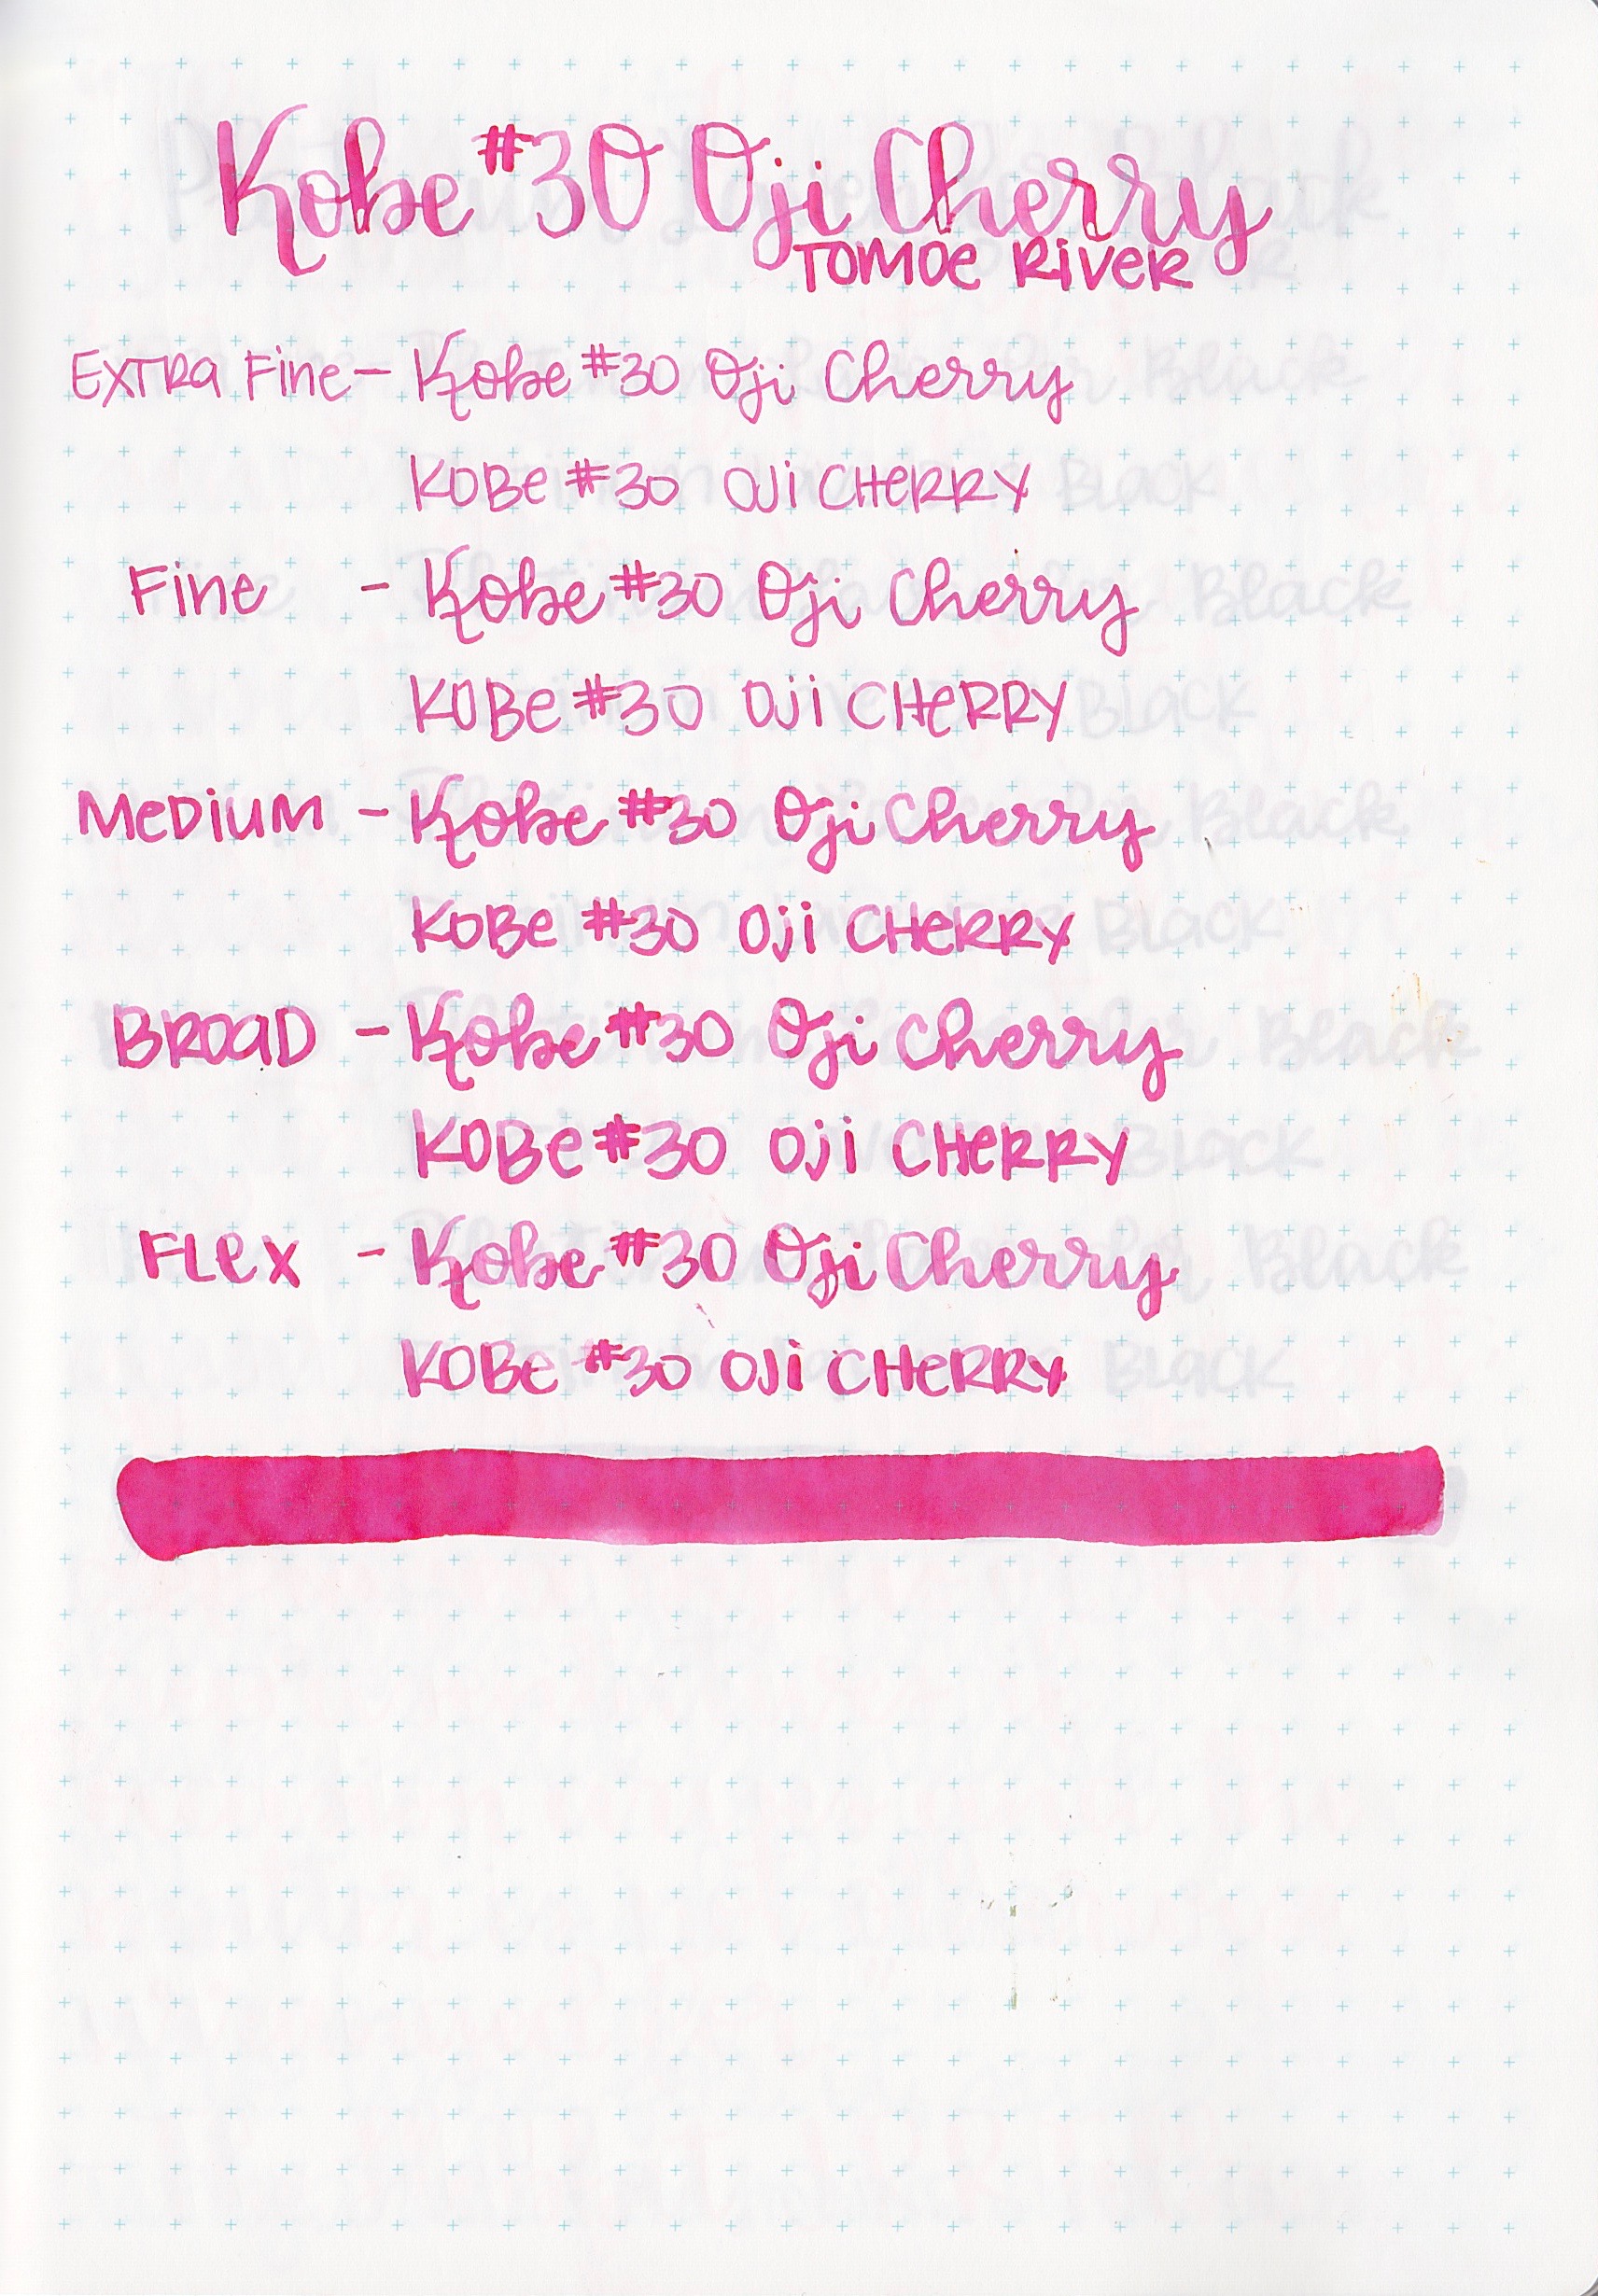 Kobe #30 Oji Cherry
TOMOE RIVER
EXTRA Fine - Kobe #30 Oji Cherry
KOBe #30 OJi CHeRRY
Fine - Kobe #30 Oji Cherry
KOBe #30 OJi CHeRRY
MeDiUM - Kobe #30 Oji Cherry
KOBe #30 Oji CHeRRY
BROaD - Kobe #30 Oji Cherry
KOBe #30 OJi CHeRRY
FLex - Kobe #30 Oji Cherry
KOBe #30 OJi CHeRRY